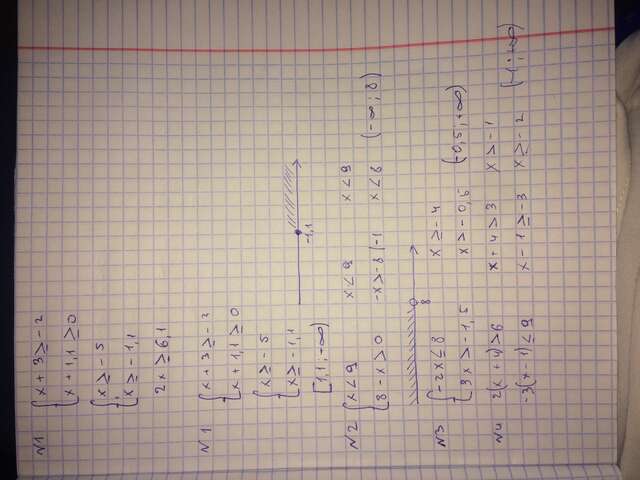 N1 { x + 3 ≥ - 2
x + 1,1 ≥ 0
{ x ≥ - 5
x ≥ - 1,1
2x ≥ 6,1
N1 { x + 3 ≥ - 2
x + 1,1 ≥ 0
{ x ≥ - 5
x ≥ - 1,1
-1,1
[1,1; -∞)
N2 { x < 9 x < 9 x < 9
8 - x > 0 -x > -8 |-1 x < 8 (-∞; 8)
8
N3 { -2x ≤ 8 x ≥ - 4
3x > - 1,5 x > - 0,5 (-0,5; +∞)
N4 2(x + 4) > 6 x + 4 > 3 x > - 1
-3(x - 1) ≤ 9 x - 1 ≥ -3 x ≥ - 2 (-1; +∞)